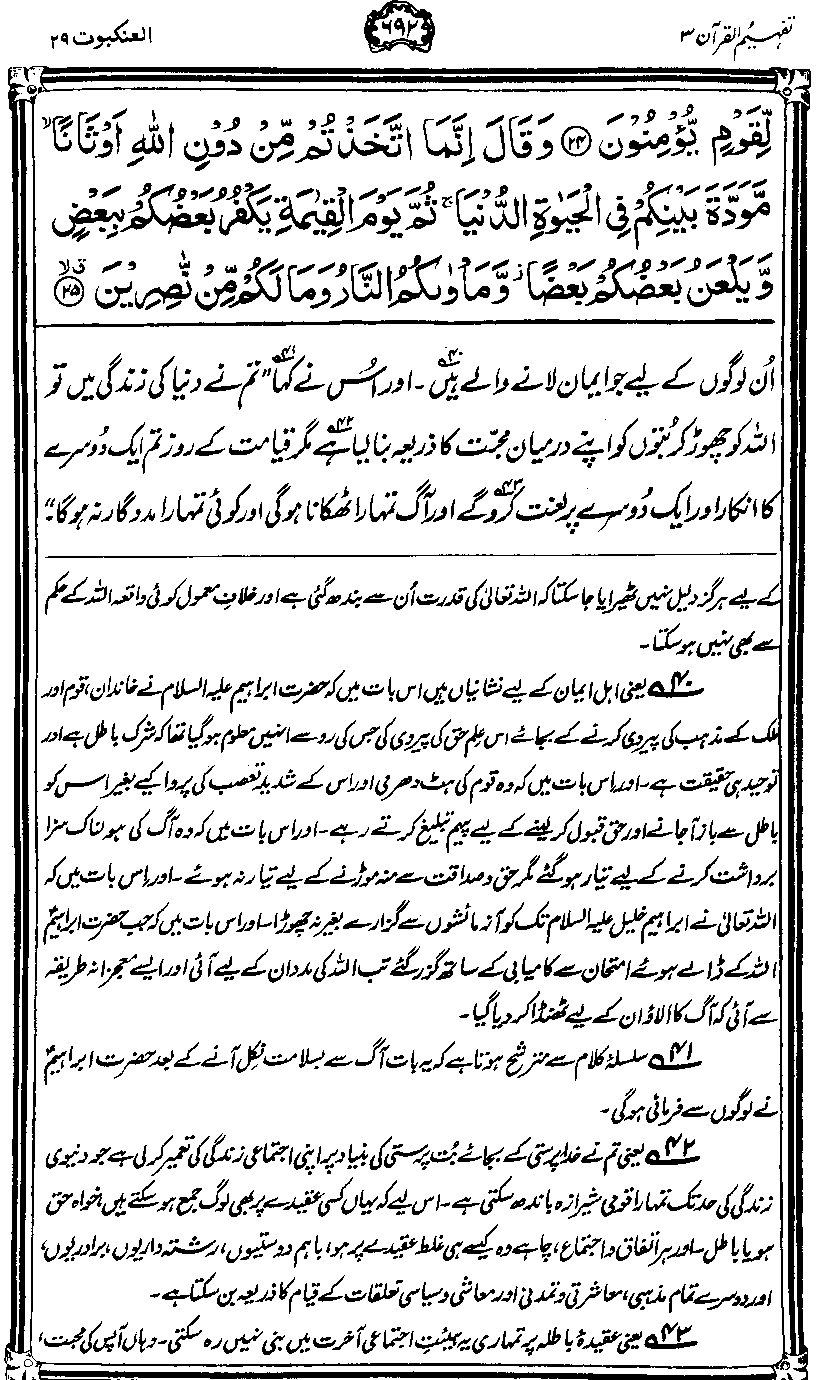 تفہیم القرآن ۳
۶۹۲
العنکبوت ۲۹
لِّقَوْمٍ یُّؤْمِنُوْنَ ﴿۲۴﴾ وَقَالَ اِنَّمَا اتَّخَذْتُمْ مِّنْ دُوْنِ اللّٰهِ اَوْثَانًا ۙ
مَّوَدَّةَ بَیْنِكُمْ فِی الْحَیٰوةِ الدُّنْیَا ۚ ثُمَّ یَوْمَ الْقِیٰمَةِ یَكْفُرُ بَعْضُكُمْ بِبَعْضٍ
وَّیَلْعَنُ بَعْضُكُمْ بَعْضًا ؗ وَّمَاْوٰىكُمُ النَّارُ وَمَا لَكُمْ مِّنْ نّٰصِرِیْنَ ﴿۲۵﴾ ق لا
اُن لوگوں کے لیے جو ایمان لانے والے ہیں۴۰۔ اور اُس نے کہا۴۱ "تم نے دنیا کی زندگی میں تو
اللہ کو چھوڑ کر بُتوں کو اپنے درمیان محبّت کا ذریعہ بنا لیا ہے۴۲ مگر قیامت کے روز تم ایک دُوسرے
کا انکار اور ایک دُوسرے پر لعنت کرو گے۴۳ اور آگ تمہارا ٹھکانا ہوگی اور کوئی تمہارا مددگار نہ ہوگا۔"
کے لیے ہرگز دلیل نہیں ٹھیرایا جا سکتا کہ اللہ تعالیٰ کی قدرت اُن سے بندھ گئی ہے اور خلافِ معمول کوئی واقعہ اللہ کے حکم
سے بھی نہیں ہو سکتا۔
۴۰ یعنی اہل ایمان کے لیے نشانیاں ہیں اس بات میں کہ حضرت ابراہیم علیہ السلام نے خاندان، قوم اور
ملک کے مذہب کی پیروی کرنے کے بجائے اس علمِ حق کی پیروی کی جس کی رو سے انہیں معلوم ہو گیا تھا کہ شرک باطل ہے اور
توحید ہی حقیقت ہے۔ اور اس بات میں کہ وہ قوم کی ہٹ دھرمی اور اس کے شدید تعصب کی پروا کیے بغیر اس کو
باطل سے باز آ جانے اور حق قبول کر لینے کے لیے پیہم تبلیغ کرتے رہے۔ اور اس بات میں کہ وہ آگ کی ہولناک سزا
برداشت کرنے کے لیے تیار ہو گئے مگر حق و صداقت سے منہ موڑنے کے لیے تیار نہ ہوئے۔ اور اس بات میں کہ
اللہ تعالیٰ نے ابراہیم خلیل علیہ السلام تک کو آزمائشوں سے گزارے بغیر نہ چھوڑا۔ اور اس بات میں کہ جب حضرت ابراہیمؑ
اللہ کے ڈالے ہوئے امتحان سے کامیابی کے ساتھ گزر گئے تب اللہ کی مدد ان کے لیے آئی اور ایسے معجزانہ طریقہ
سے آئی کہ آگ کا الاؤ ان کے لیے ٹھنڈا کر دیا گیا۔
۴۱ سلسلۂ کلام سے مترشح ہوتا ہے کہ یہ بات آگ سے بسلامت نکل آنے کے بعد حضرت ابراہیمؑ
نے لوگوں سے فرمائی ہوگی۔
۴۲ یعنی تم نے خدا پرستی کے بجائے بُت پرستی کی بنیاد پر اپنی اجتماعی زندگی کی تعمیر کر لی ہے جو دنیوی
زندگی کی حد تک تمہارا قومی شیرازہ باندھ سکتی ہے۔ اس لیے کہ یہاں کسی عقیدے پر بھی لوگ جمع ہو سکتے ہیں، خواہ حق
ہو یا باطل۔ اور ہر اتفاق و اجتماع، چاہے وہ کیسے ہی غلط عقیدے پر ہو، باہم دوستیوں، رشتہ داریوں، برادریوں،
اور دوسرے تمام مذہبی، معاشرتی و تمدنی اور معاشی و سیاسی تعلقات کے قیام کا ذریعہ بن سکتا ہے۔
۴۳ یعنی عقیدۂ باطلہ پر تمہاری یہ ہیئتِ اجتماعی آخرت میں بنی نہیں رہ سکتی۔ وہاں آپس کی محبت،